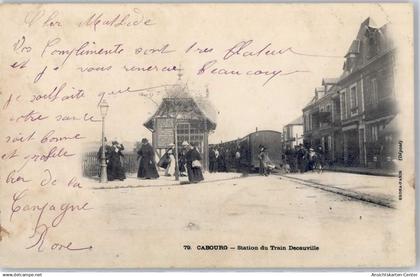 Cher Mathilde
Vos Compliments sont très Flateur
et je vous remercie beaucoup
je souhaite que
votre
soit bonne
et profite
bien de
la
Campagne
Rose
79. CABOURG — Station du Train Decauville
Ansichtskarten-Center
Ansichtskarten-Center